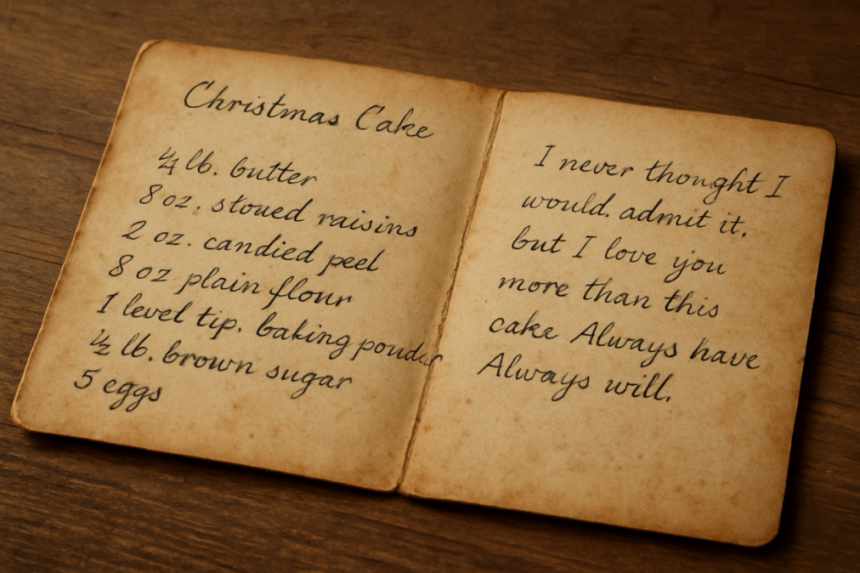 Christmas Cake
¼ lb. butter
8 oz. stoued raisins
2 oz. candied peel
8 oz plain flour
1 level tip. baking powder
½ lb. brown sugar
5 eggs
I never thought I
would. admit it.
but I love you
more than this
cake Always have
Always will.